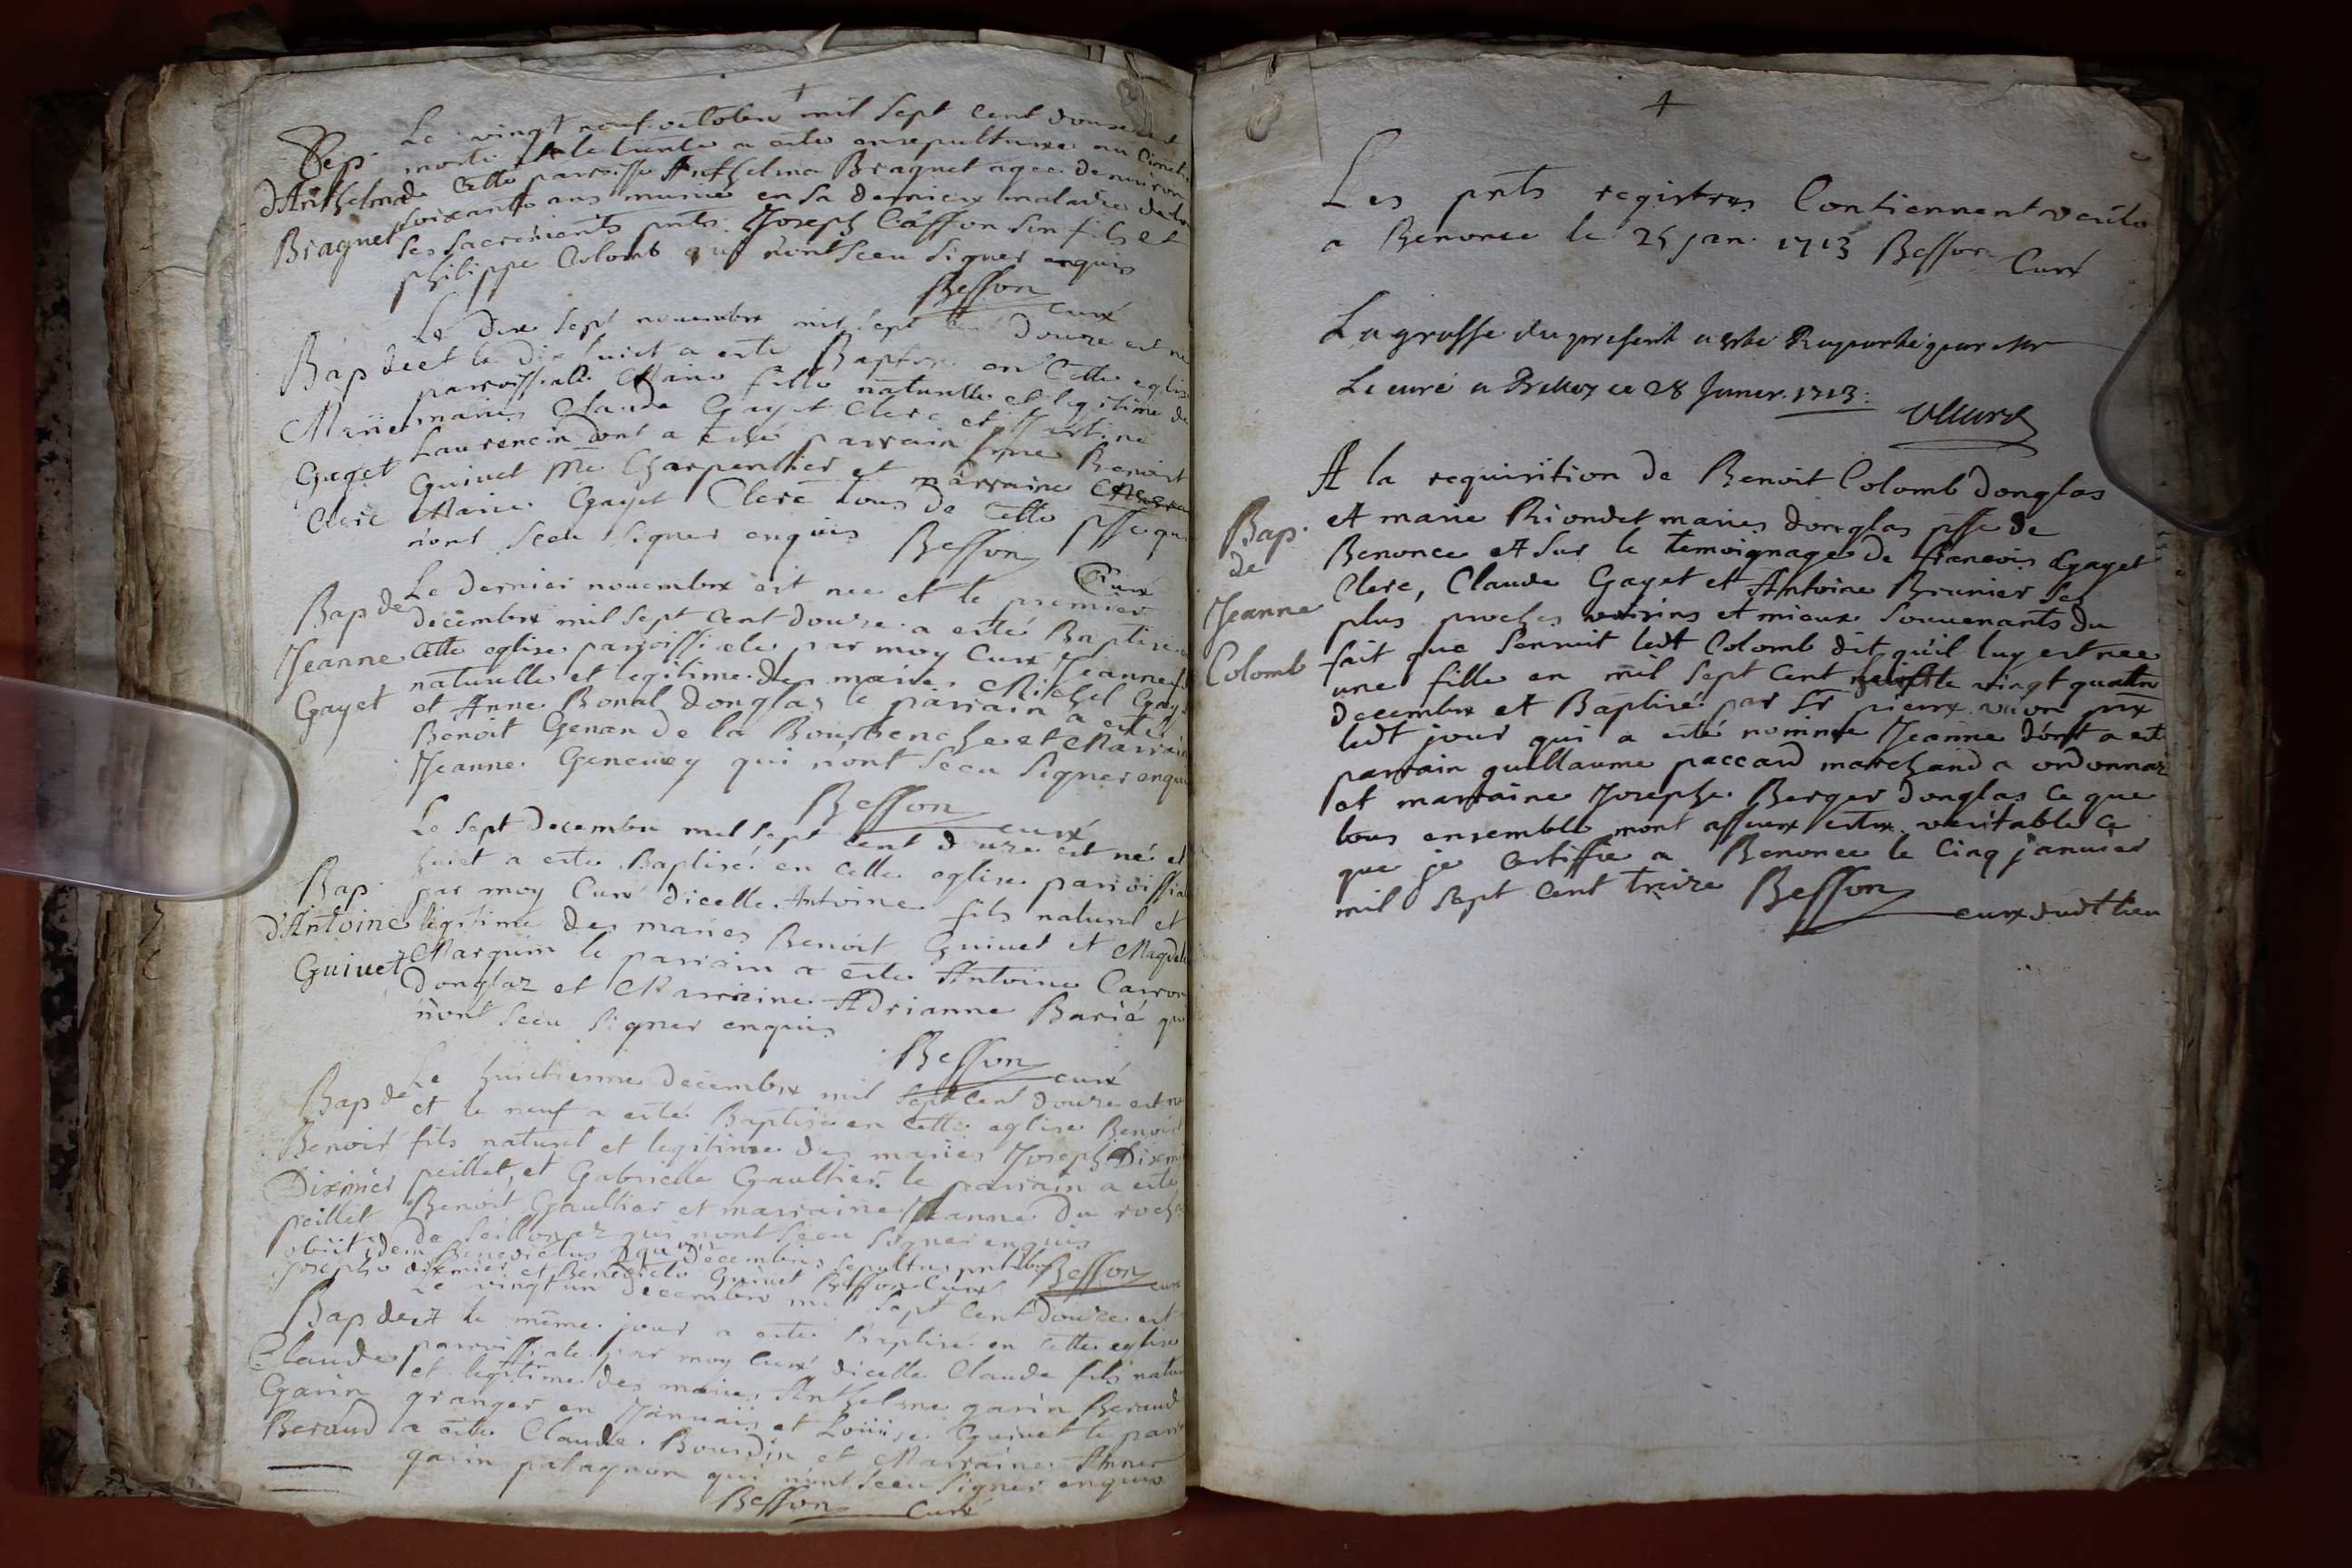 +
Sep.
d'Anthelma
Braguet
Le vingt neuf octobre mil sept cent douze est
morte et le trente a este ensepulturée au Cimeti
de cette parroisse Anthelma Braguet agee denuiron
soixante ans munie en sa derniere maladie de to
ses sacrements pnts Joseph Caffon son fils et
philippe Colomb qui n'ont sceu signer enquis
Besson curé
Bap de
Marie
Gayet
Clerc
Le dix sept nouembre mil sept cent douze est ne
et le dix huict a este Baptise en Cette eglise
parroissiale Marie fille naturelle et legitime de
maries Claude Gayet Clerc et Martine
Laurencin dont a esté parrain hone Benoist
Guiuet Me Charpentier et marraine
Marie Gayet Clerc tous de cette psse qui
n'ont sceu signer enquis Besson
Curé
Bap de
Jeanne
Gayet
Le dernier nouembre est nee et le premier
decembre mil sept cent douze a esté Baptisee
Cette eglise parroissiale par moy Curé Jeanne f
naturelle et legitime des maries Michel Gay
et Anne Bonal donglas le parrain a esté
Benoit Genan de la Bourbenche et Marrain
Jeanne Geneuey qui n'ont sceu signer enqui
Besson curé
Bap.
d'Antoine
Guiuet
Le sept decembre mil sept cent douze est né et
huict a este Baptisé en cette eglise parroissia
par moy Curé dicelle Antoine fils naturel et
legitime des maries Benoit Guiuet et Magdele
Marguin le parrain a este Antoine Carron
donglaz et Marraine Adrianne Barié qui
n'ont sceu signer enquis
Besson curé
Bap de
Benoit
Dixmier
peillet
Le huictieme decembre mil sept cent douze est ne
et le neuf a esté Baptisé en cette eglise Benoist
fils naturel et legitime des maries Joseph Dixmi
peillet, et Gabrielle Gaultier le parrain a este
Benoit Gaultier et marraine Jeanne Du roch
de Seillonaz qui n'ont sceu signer enquis
obiit idem Benedictus decembris sepultus pntibus Besson curé
Josepho dixmier et Benedicto Guiuet Besson Curé
Bap de
Claude
Garin
Beraud
Le vingt un decembre mil sept cent douze est
et le même jour a este Baptisé en cette eglise
parroissiale par moy Curé dicelle Claude fils natur
et legitime des maries Anthelme garin Beraud
granger en Januais et Loüise Guiuet le parr
a este Claude Bourdin et Marraine Anne
garin palagnon qui n'ont sceu signer enquis
Besson Curé
+
Les pnts registres Contiennent verite
a Benonce le 25 jan. 1713 Besson Curé
La grosse du present a este Raporté par Mr
Le curé a Belley ce 28 Januier. 1713.
Bap.
de
Jeanne
Colomb
A la requisition de Benoit Colomb donglas
et marie Riondet maries donglas psse de
Benonce et sur le temoignage de francois Gayet
Clerc, Claude Gayet et Antoine Brunier les
plus proches voisins et mieux souuenants du
fait que s'ensuit ledt Colomb dit qu'il luy est née
une fille en mil sept cent le vingt quatre
decembre et Baptisé par Sr pierre
ledt jour qui a esté nommée Jeanne dont a esté
parrain guillaume paccard marchand a ordonnaz
et marraine Josephe Berger donglas Ce que
tous ensemble m'ont asseuré estre veritable Ce
que je Certiffie a Benonce le Cinq januier
mil sept cent treize Besson
curé dudt lieu